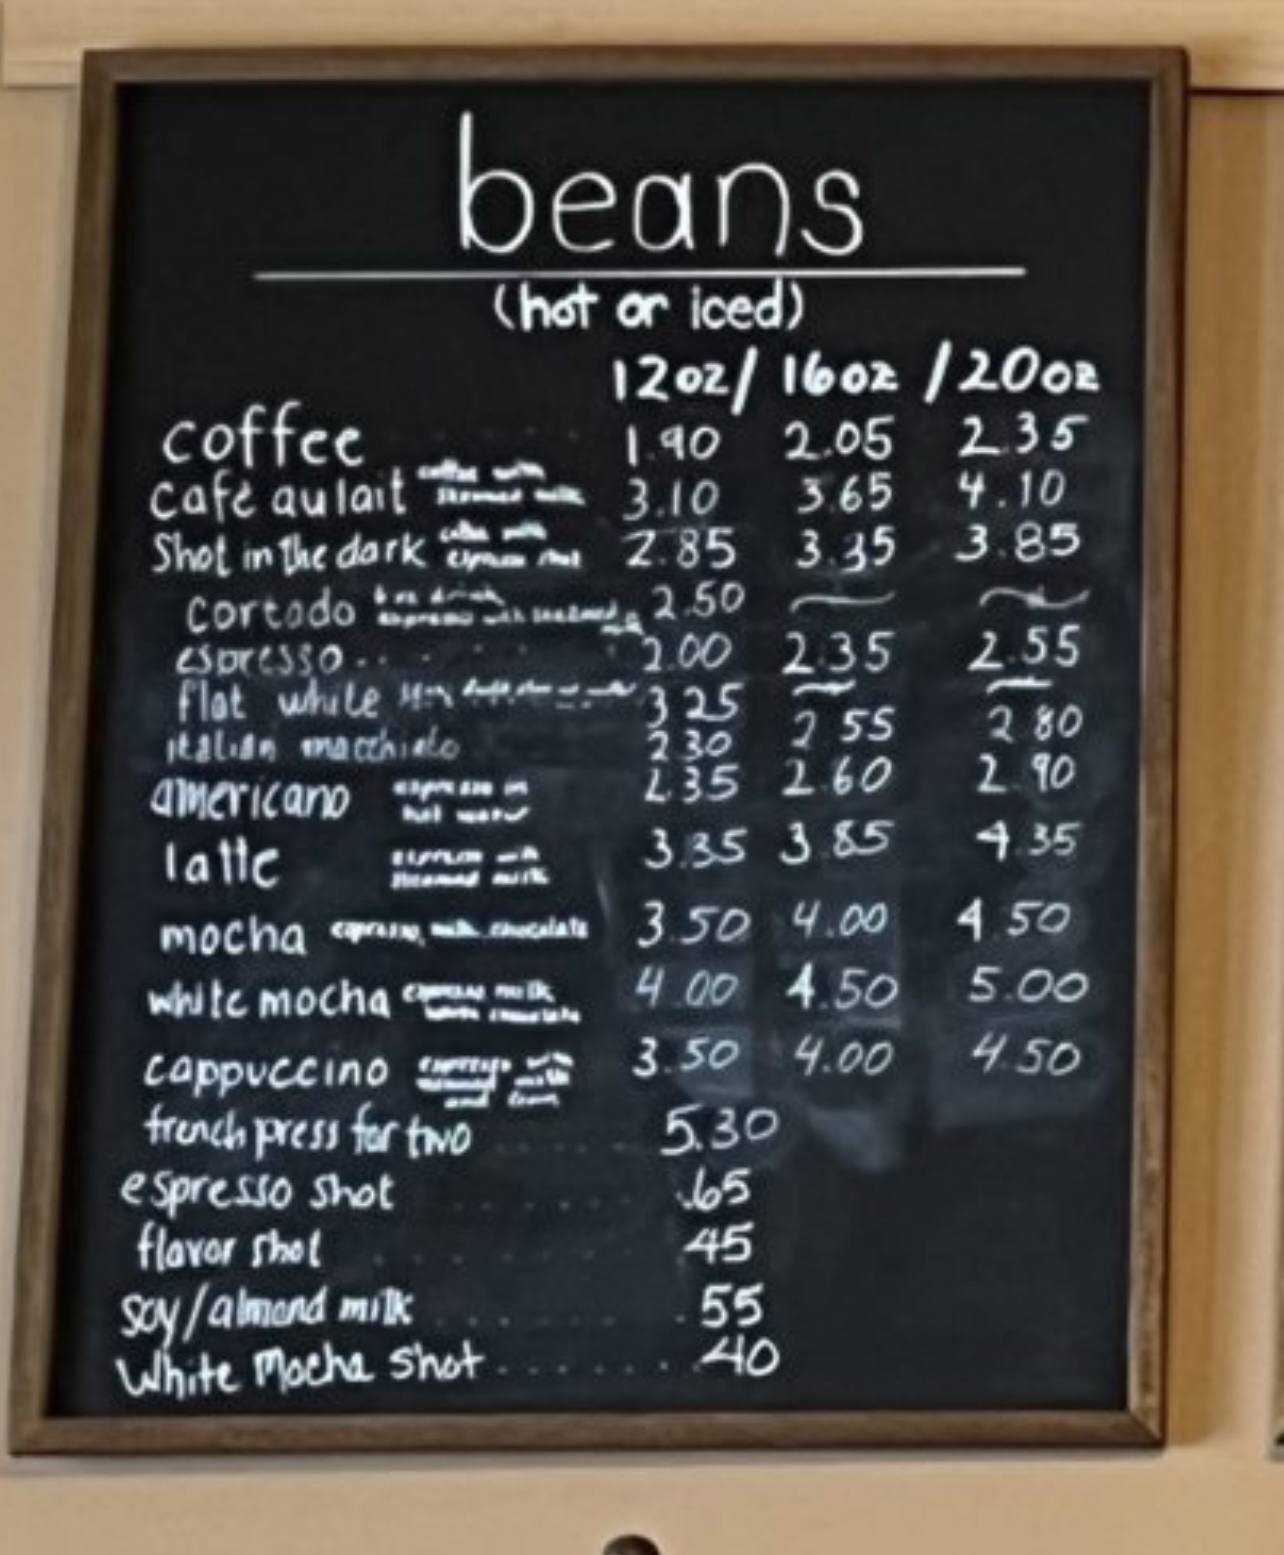 beans
(hot or iced)
12oz / 16oz / 20oz
coffee 1.90 2.05 2.35
café au lait coffee with steamed milk 3.10 3.65 4.10
Shot in the dark coffee with espresso shot 2.85 3.35 3.85
cortado espresso with 2.50
espresso 2.00 2.35 2.55
flat white 3.25
italian macchiato 2.30 2.55 2.80
americano espresso in hot water 2.35 2.60 2.90
latte espresso with steamed milk 3.35 3.85 4.35
mocha espresso, milk, chocolate 3.50 4.00 4.50
white mocha espresso milk white chocolate 4.00 4.50 5.00
cappuccino espresso with steamed milk and foam 3.50 4.00 4.50
french press for two 5.30
espresso shot .65
flavor shot 45
soy/almond milk .55
White Mocha shot .40